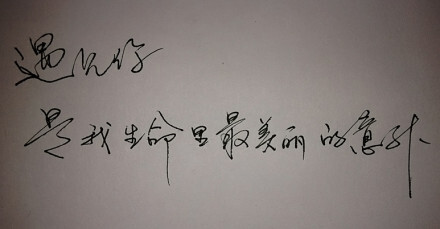 遇见你
是我生命里最美丽的意外